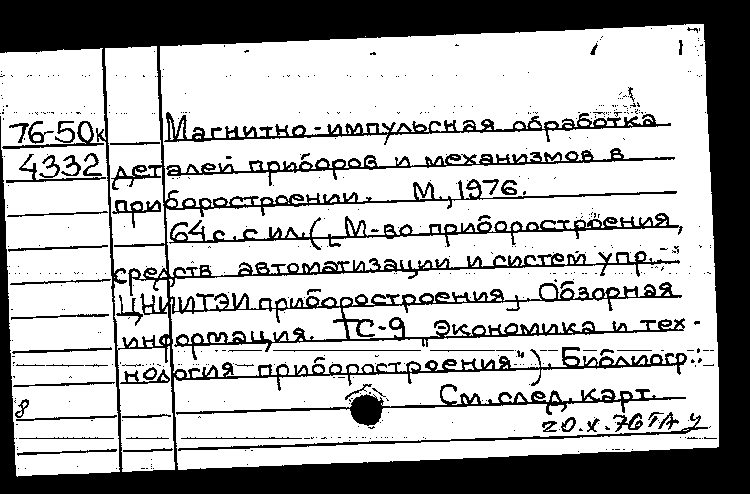 76-50к Магнитно-импульсная обработка
4332 деталей приборов и механизмов в
приборостроении. М., 1976.
64 с. с ил. ([М-во приборостроения,
средств автоматизации и систем упр.
ЦНИИТЭИ приборостроения]. Обзорная
информация. ТС-9 "Экономика и тех-
нология приборостроения"). Библиогр.:
8 См. след. карт.
20.X.76